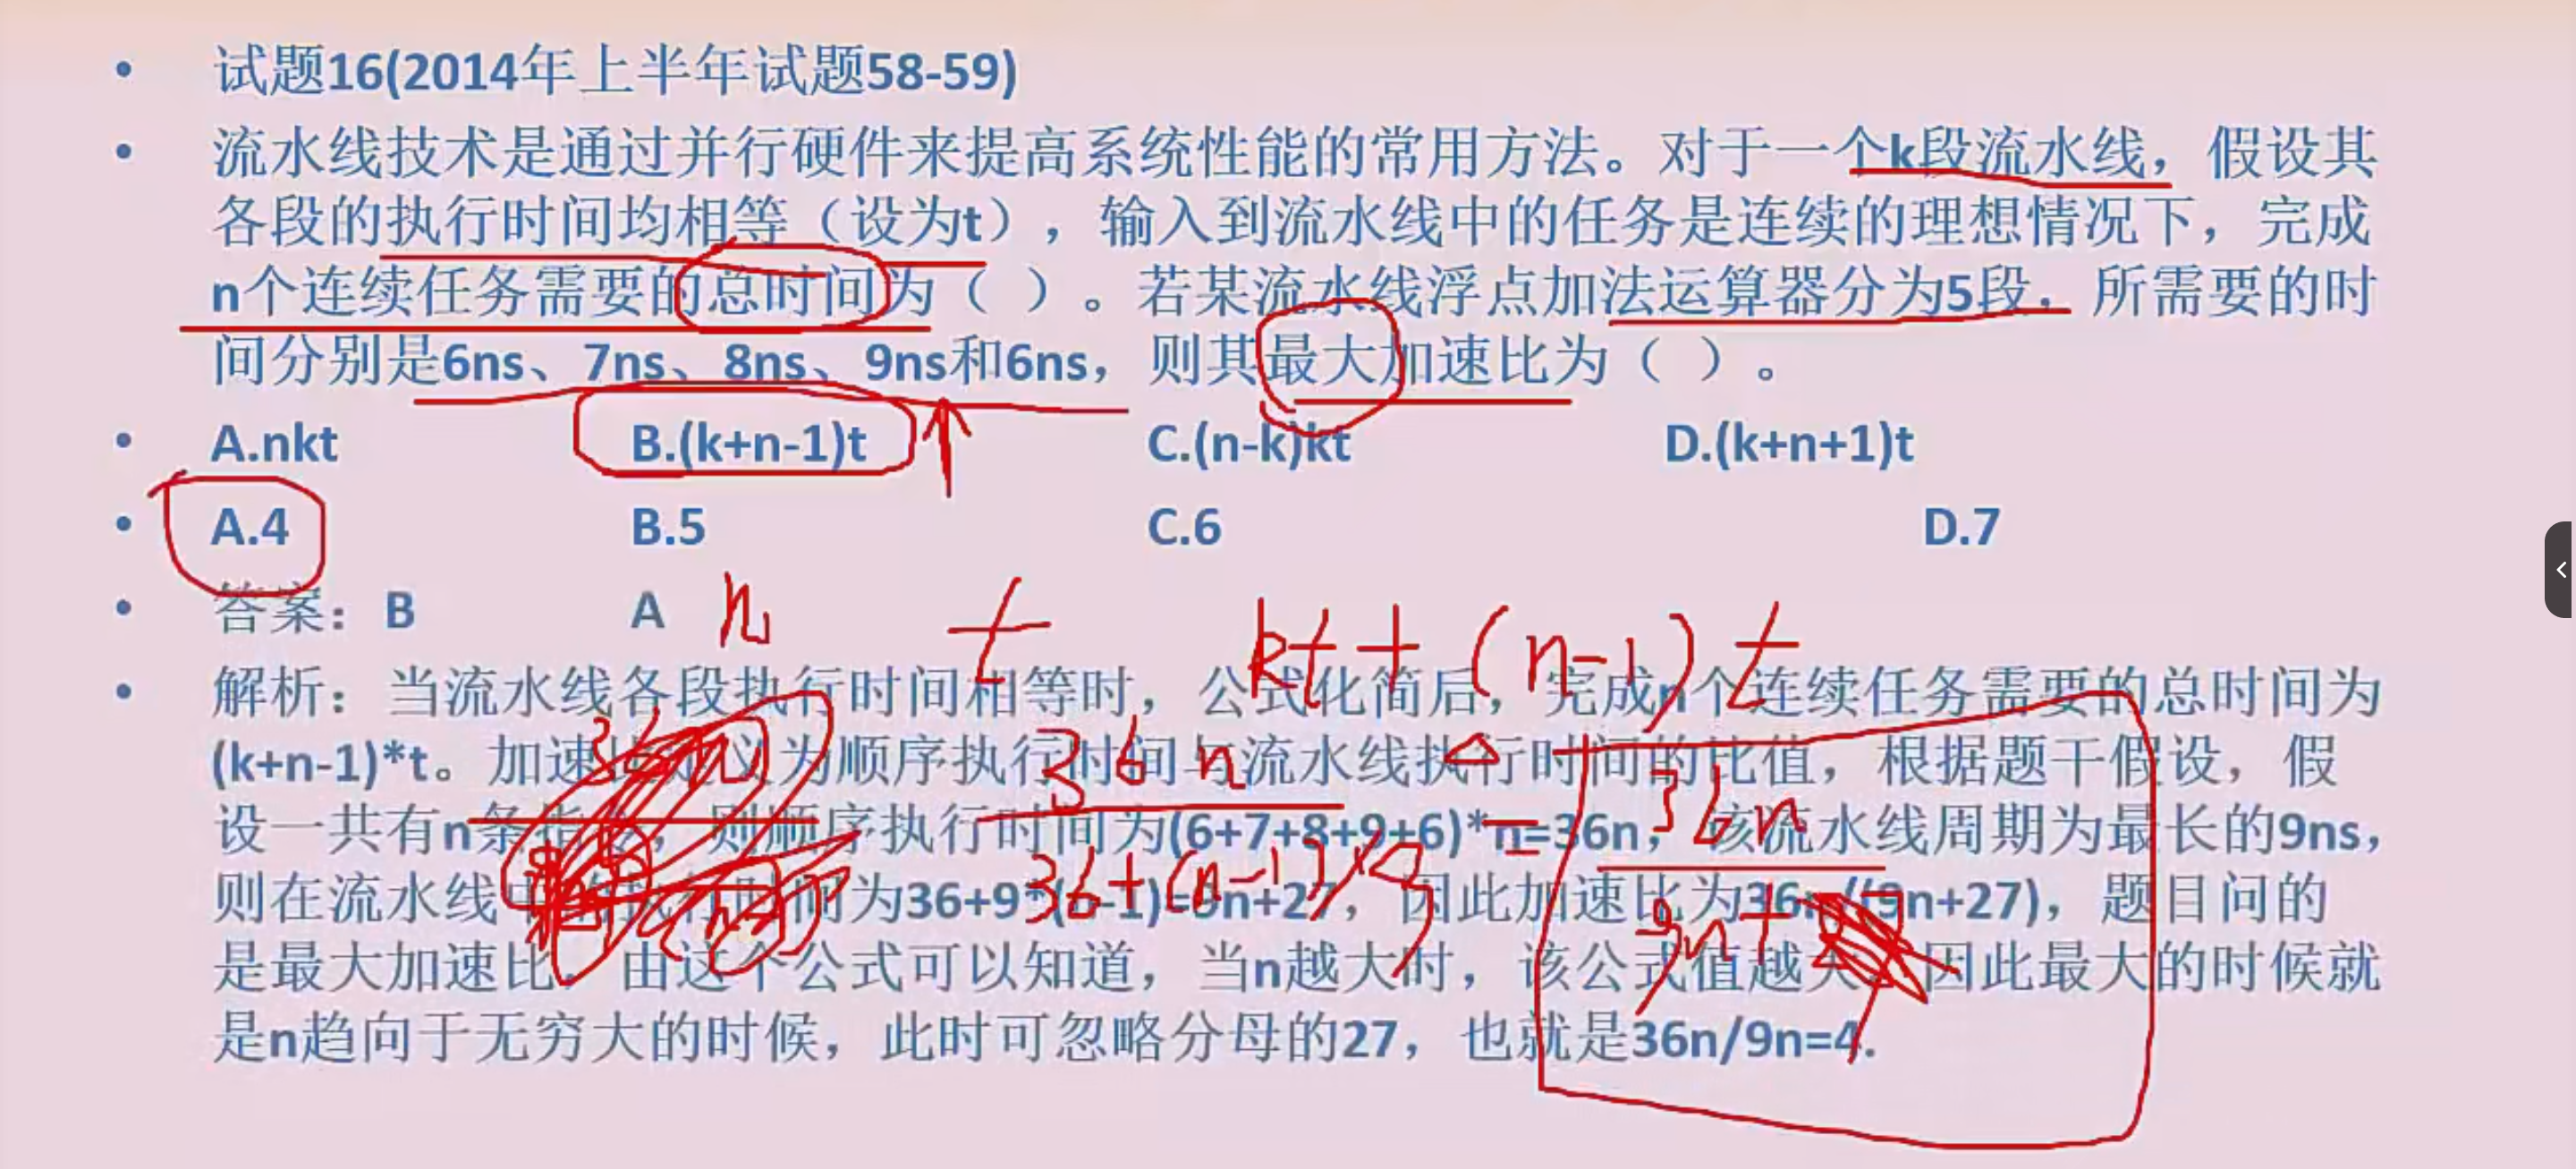 试题16(2014年上半年试题58-59)
流水线技术是通过并行硬件来提高系统性能的常用方法。对于一个k段流水线，假设其
各段的执行时间均相等（设为t），输入到流水线中的任务是连续的理想情况下，完成
n个连续任务需要的总时间为（ ）。若某流水线浮点加法运算器分为5段，所需要的时
间分别是6ns、7ns、8ns、9ns和6ns，则其最大加速比为（ ）。
A.nkt B.(k+n-1)t C.(n-k)kt D.(k+n+1)t
A.4 B.5 C.6 D.7
答案：B A
n t kt+(n-1)t
解析：当流水线各段执行时间相等时，公式化简后，完成n个连续任务需要的总时间为
(k+n-1)*t。加速比定义为顺序执行时间与流水线执行时间的比值，根据题干假设，假
36n 36n
设一共有n条指令，则顺序执行时间为(6+7+8+9+6)*n=36n，该流水线周期为最长的9ns，
36+(n-1)×9 = 9n+
则在流水线中的执行时间为36+9*(n-1)=9n+27，因此加速比为36n/(9n+27)，题目问的
是最大加速比，由这个公式可以知道，当n越大时，该公式值越大，因此最大的时候就
是n趋向于无穷大的时候，此时可忽略分母的27，也就是36n/9n=4.